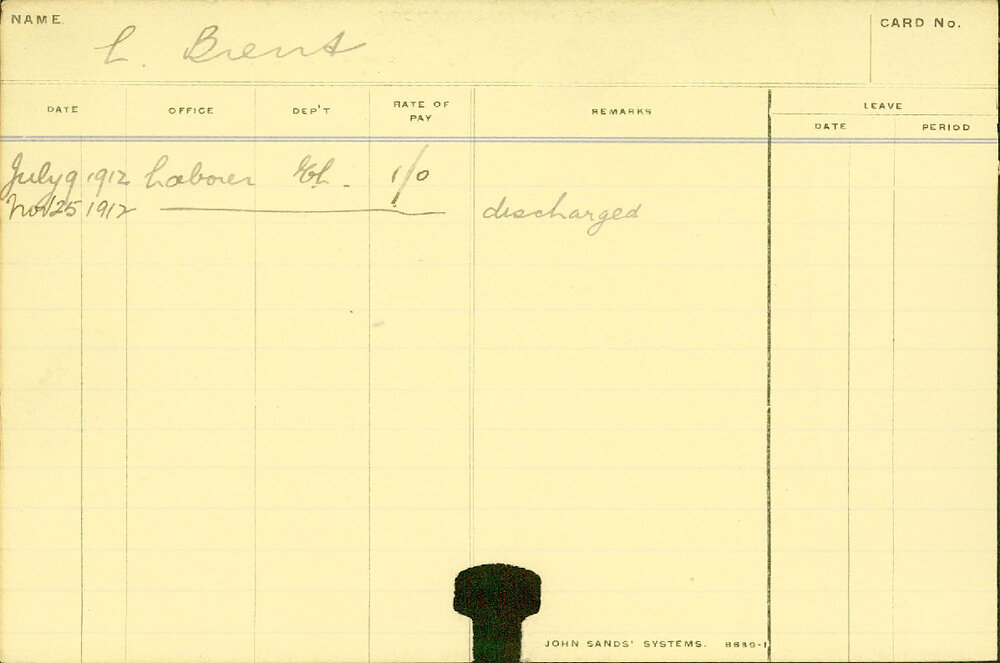 NAME
CARD No.
L. Brent
DATE OFFICE DEP'T RATE OF PAY REMARKS LEAVE
DATE PERIOD
July 9 1912 Laborer El. 1/0
Nov 25 1912 discharged
JOHN SANDS' SYSTEMS. 8889-1